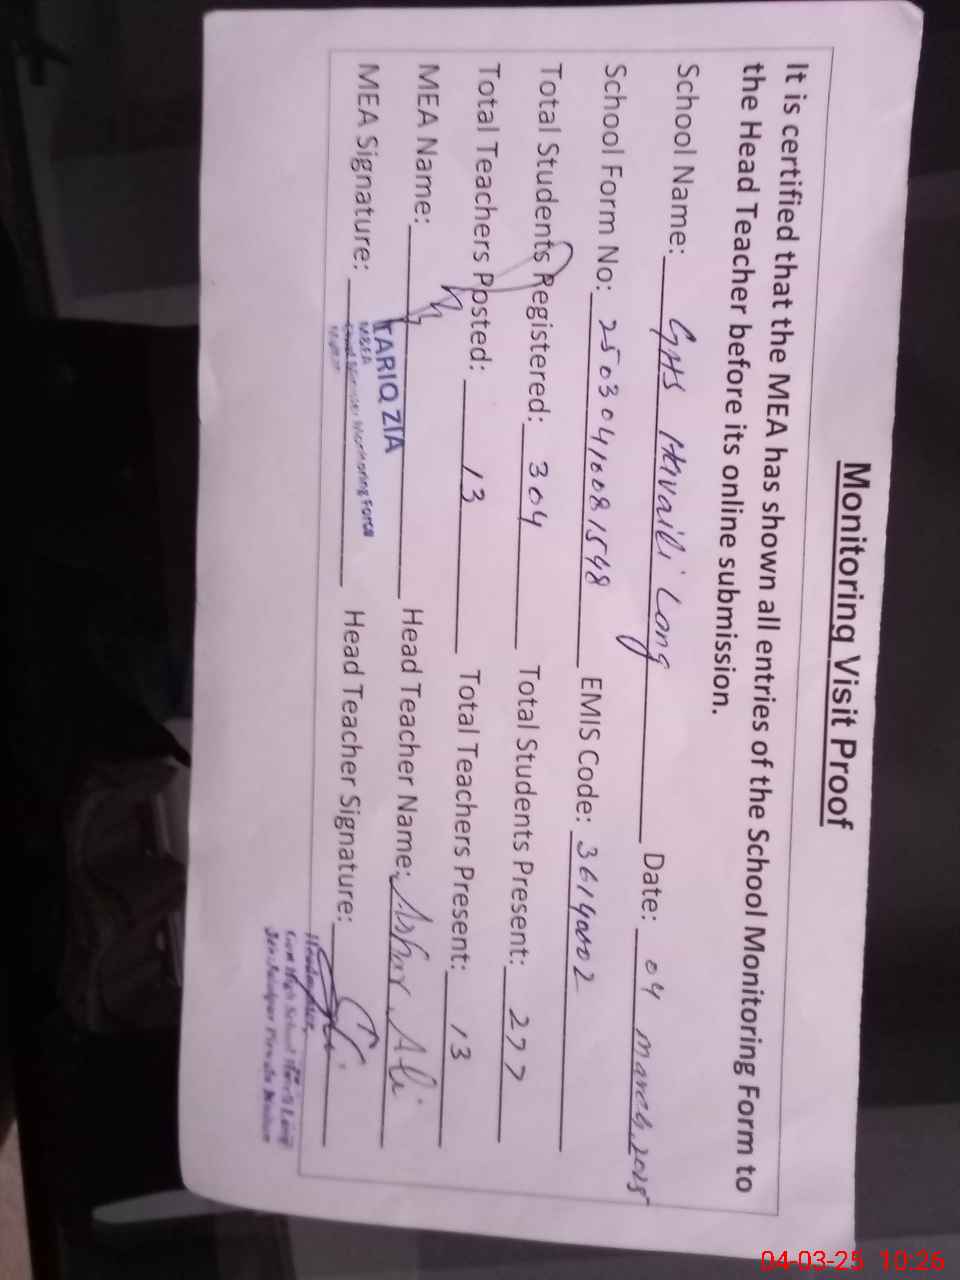 Monitoring Visit Proof
It is certified that the MEA has shown all entries of the School Monitoring Form to
the Head Teacher before its online submission.
School Name: GHS Havaili Long Date: 04 March, 2025
School Form No: 25030410081548 EMIS Code:
Total Students Registered: 304 Total Students Present: 277
Total Teachers Posted: 13 Total Teachers Present: 13
MEA Name: Head Teacher Name: Ali
TARIQ ZIA
MEA Signature: Head Teacher Signature:
MEA
Monitoring Force
Govt High School Long
04-03-25 10:26